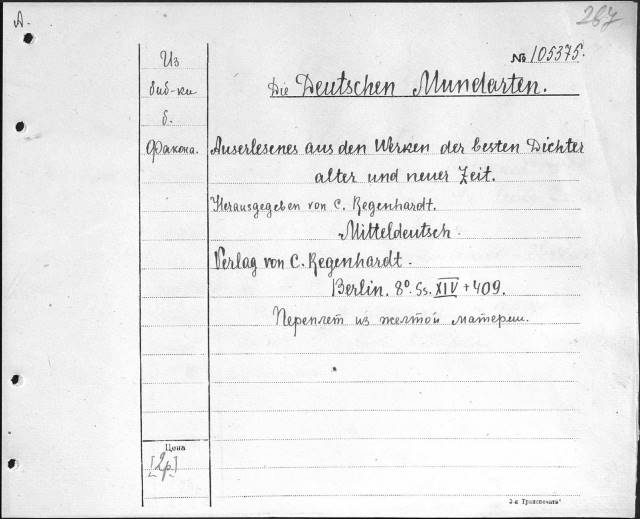 А.
267
№ 105375.
Из
биб-ки
б.
Факона.
Die Deutschen Mundarten.
Auserlesenes aus den Werken der besten Dichter
alter und neuer Zeit.
Herausgegeben von C. Regenhardt.
Mitteldeutsch.
Verlag von C. Regenhardt.
Berlin. 8º. Ss. XIV + 409.
Переплет из желтой материи.
Цена
[2р.]
3-я Транспечать"